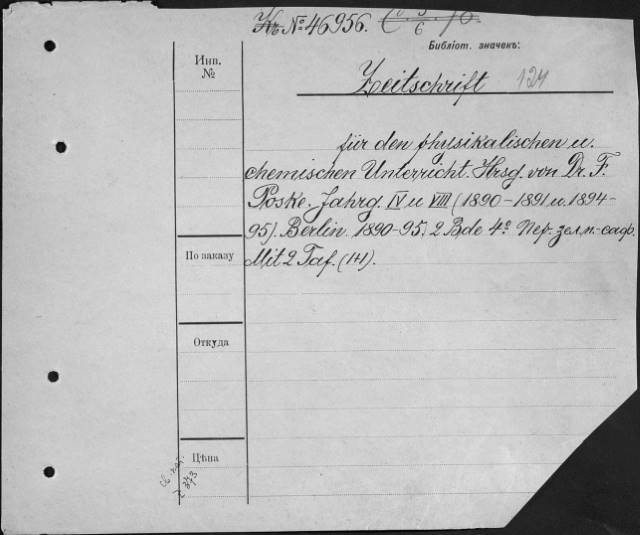 № 46956.
Библіот. значекъ:
Инв.
№
Zeitschrift 124
für den physikalischen u.
chemischen Unterricht. Hrsg. von Dr. F.
Poske. Jahrg. IV u VIII (1890-1891 u. 1894-
95). Berlin 1890-95. 2 Bde 4º Пер. зел. п.-саф.
Mit 2 Taf. (1+1).
По заказу
Откуда
Цѣна